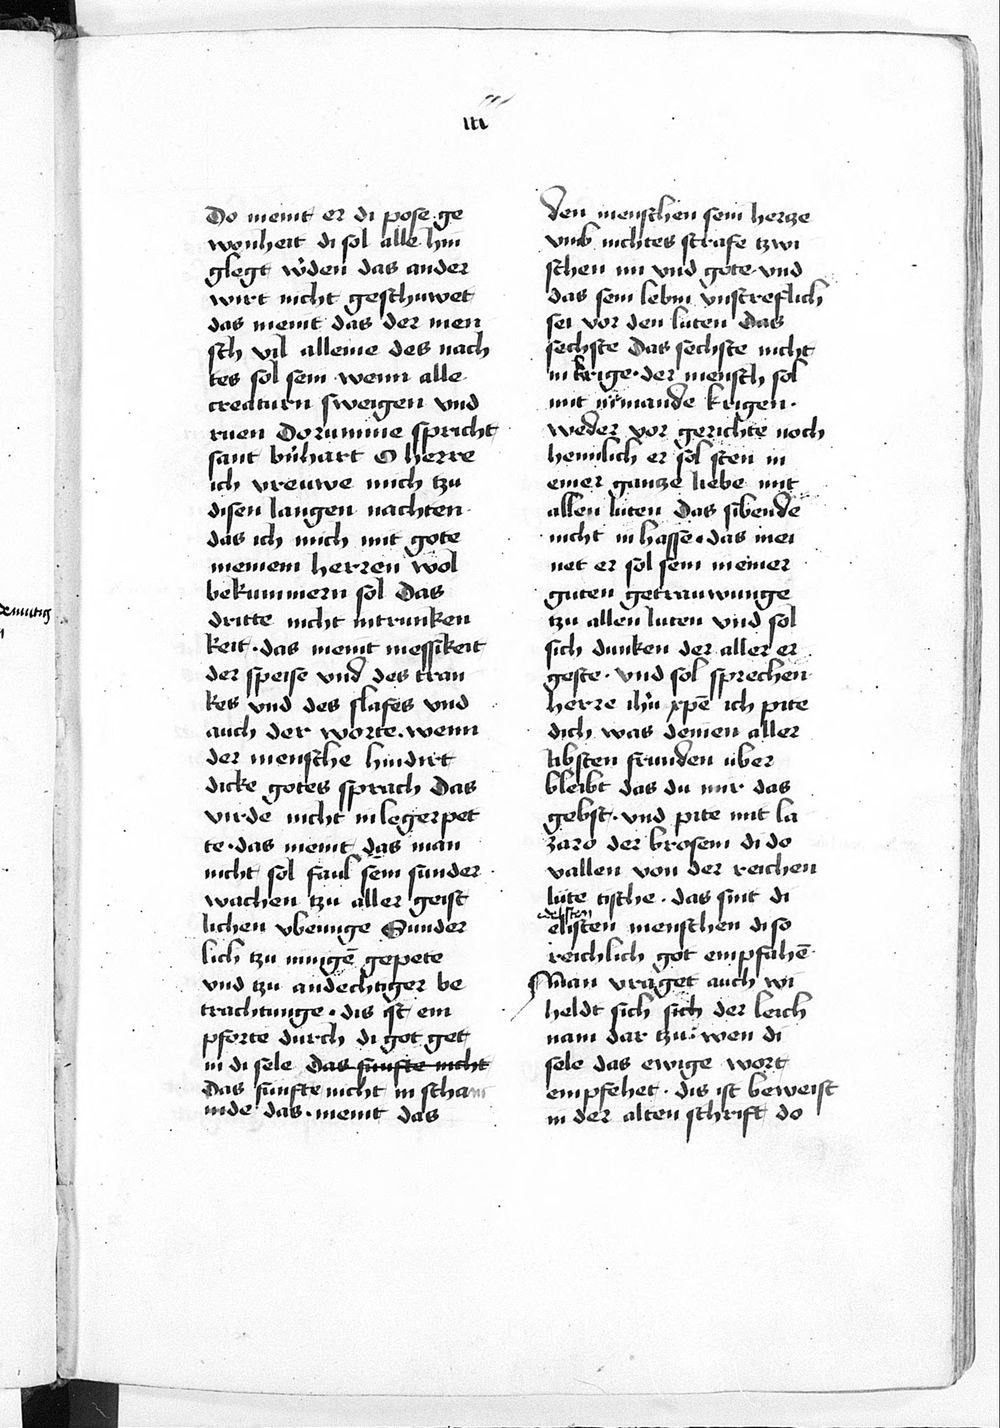 iii
Do meint er di pose ge
wonheit di sol alle hin
glegt w'den das ander
wirt nicht geschuwet
das meint das der men
sch vil alleine des nach
tes sol sein wenn alle
creaturn sweigen vnd
ruen Dorumme spricht
sant b'nhart O herre
ich vreuwe mich tzu
disen langen nachten
das ich mich mit gote
meinem herren wol
bekummern sol Das
dritte nicht in trunken
keit · das meint messikeit
der speise vnd des tran
kes vnd des slafes vnd
auch der worte . wenn
der mensche hindirt
dicke gotes sprach Das
virde nicht in leger pet
te · das meint das man
nicht sol faul sein sunder
wachen tzu aller geist
lichen vbeunge Sunder
lich tzu innigē gepete
vnd tzu andechtiger be
trachtunge · dis ist ein
pforte durch di got get
in di sele Das funfte nicht
Das funfte nicht in scham
mde das · meint das
den menschen sein hertze
vmb nichtes strafe tzwi
schen im vnd gote · vnd
das sein lebin vnstreflich
sei vor den luten Das
sechste Das sechste nicht
in krige · der mensch sol
mit nimande krigen ·
weder vor gerichte noch
heimlich er sol sten in
einer gantze liebe mit
allen luten Das sibende
nicht in hasse · das mei
net er sol sein in einer
guten getrauwunge
tzu allen luten vnd sol
sich dunken der aller er
geste · vnd sol sprechen
herre ih'u xpē ich pite
dich was deinen aller
libsten frunden uber
bleibt das du mir das
gebst · vnd pite mit la
zaro der brosem di do
vallen von der reichen
lute tische · das sint di
edelsten
elisten menschen di so
reichlich got empfahē
Man vraget auch wi
heldt sich sich der leich
nam dar tzu · wen di
sele das ewige wort
empfehet · dis ist beweist
in der alten schrift do